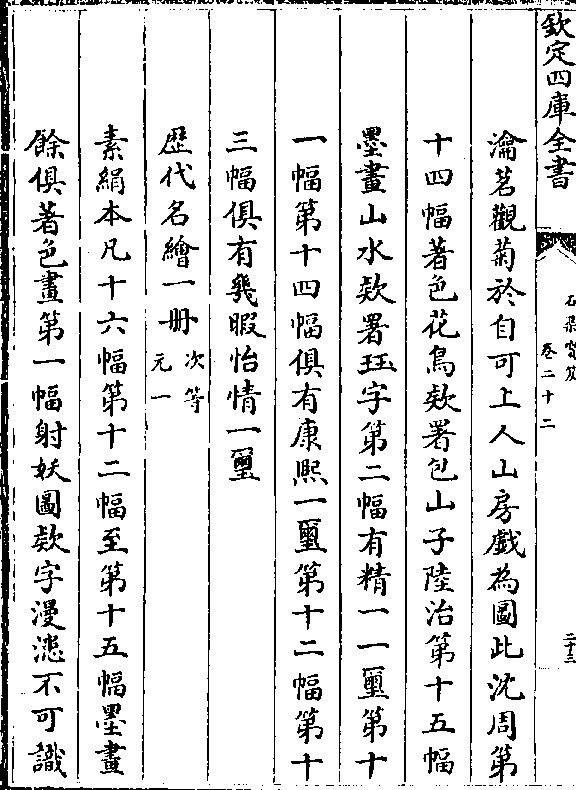 欽定四庫全書
石渠寶笈
卷二十二
二十三
瀹茗觀菊於自可上人山房戲為圖此沈周第
十四幅著色花鳥欵署包山子陸治第十五幅
墨畫山水欵署珏字第二幅有精一一璽第十
一幅第十四幅俱有康熙一璽第十二幅第十
三幅俱有幾暇怡情一璽
歴代名繪一冊次等元一
素絹本凡十六幅第十二幅至第十五幅墨畫
餘俱著色畫第一幅射妖圖欵字漫漶不可識